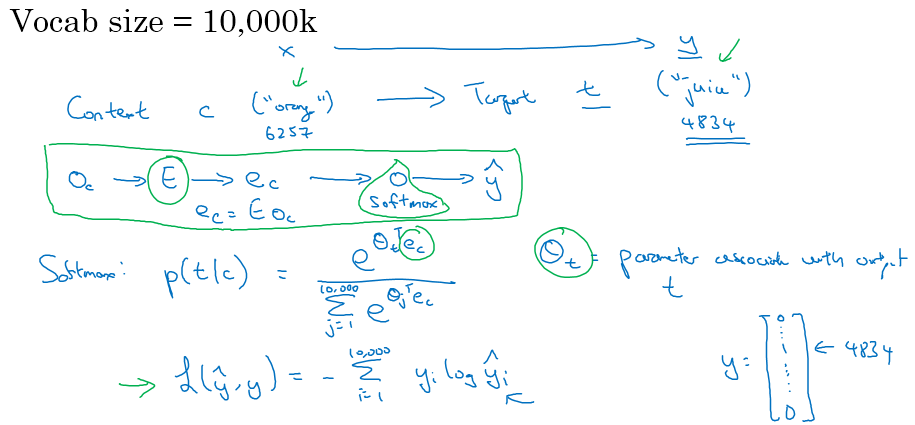 Vocab size = 10,000k
x → y
Context c ("orange") → Target t ("juice")
6257 4834
O_c → E → e_c → O → ŷ
softmax
e_c = E O_c
Softmax: p(t|c) = e^{θ_t^T e_c} / Σ_{j=1}^{10,000} e^{θ_j^T e_c}
θ_t = parameter associate with output t
ℒ(ŷ, y) = - Σ_{i=1}^{10,000} y_i log ŷ_i
y = [0 ⋮ 1 ⋮ 0] ← 4834